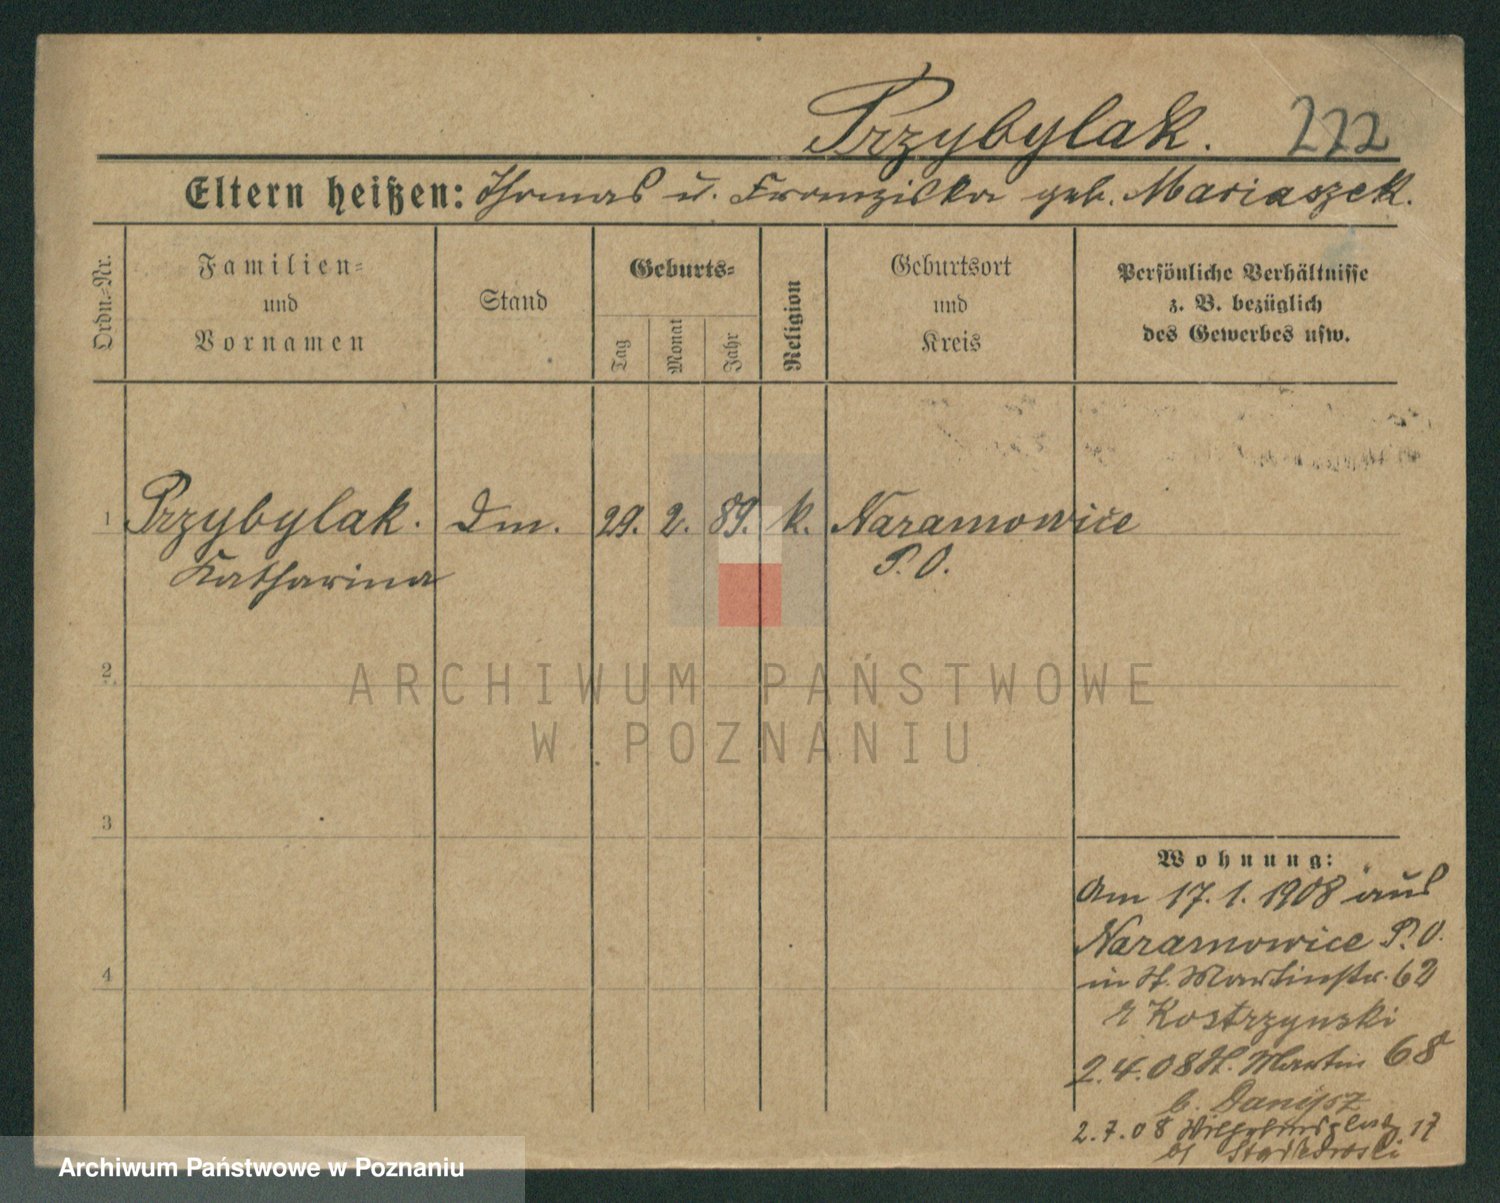 Przybylak. 222
Eltern heißen: Thomas u. Franziska geb. Mariaszek.
Ordn.-Nr.
Familien-
und
Vornamen
Stand
Geburts-
Tag
Monat
Jahr
Religion
Geburtsort
und
Kreis
Persönliche Verhältnisse
z. B. bezüglich
des Gewerbes usw.
1 Przybylak. Dm. 29. 2. 89. k. Naramowice
Katharina P. O.
2
ARCHIWUM PAŃSTWOWE
W POZNANIU
3
4
Wohnung:
Am 17. 1. 1908 aus
Naramowice P. O.
in St. Martinstr. 62
Kostrzynski
2.4.08 St. Martin 68
b. Danysz
2.7.08 17
bei
Archiwum Państwowe w Poznaniu